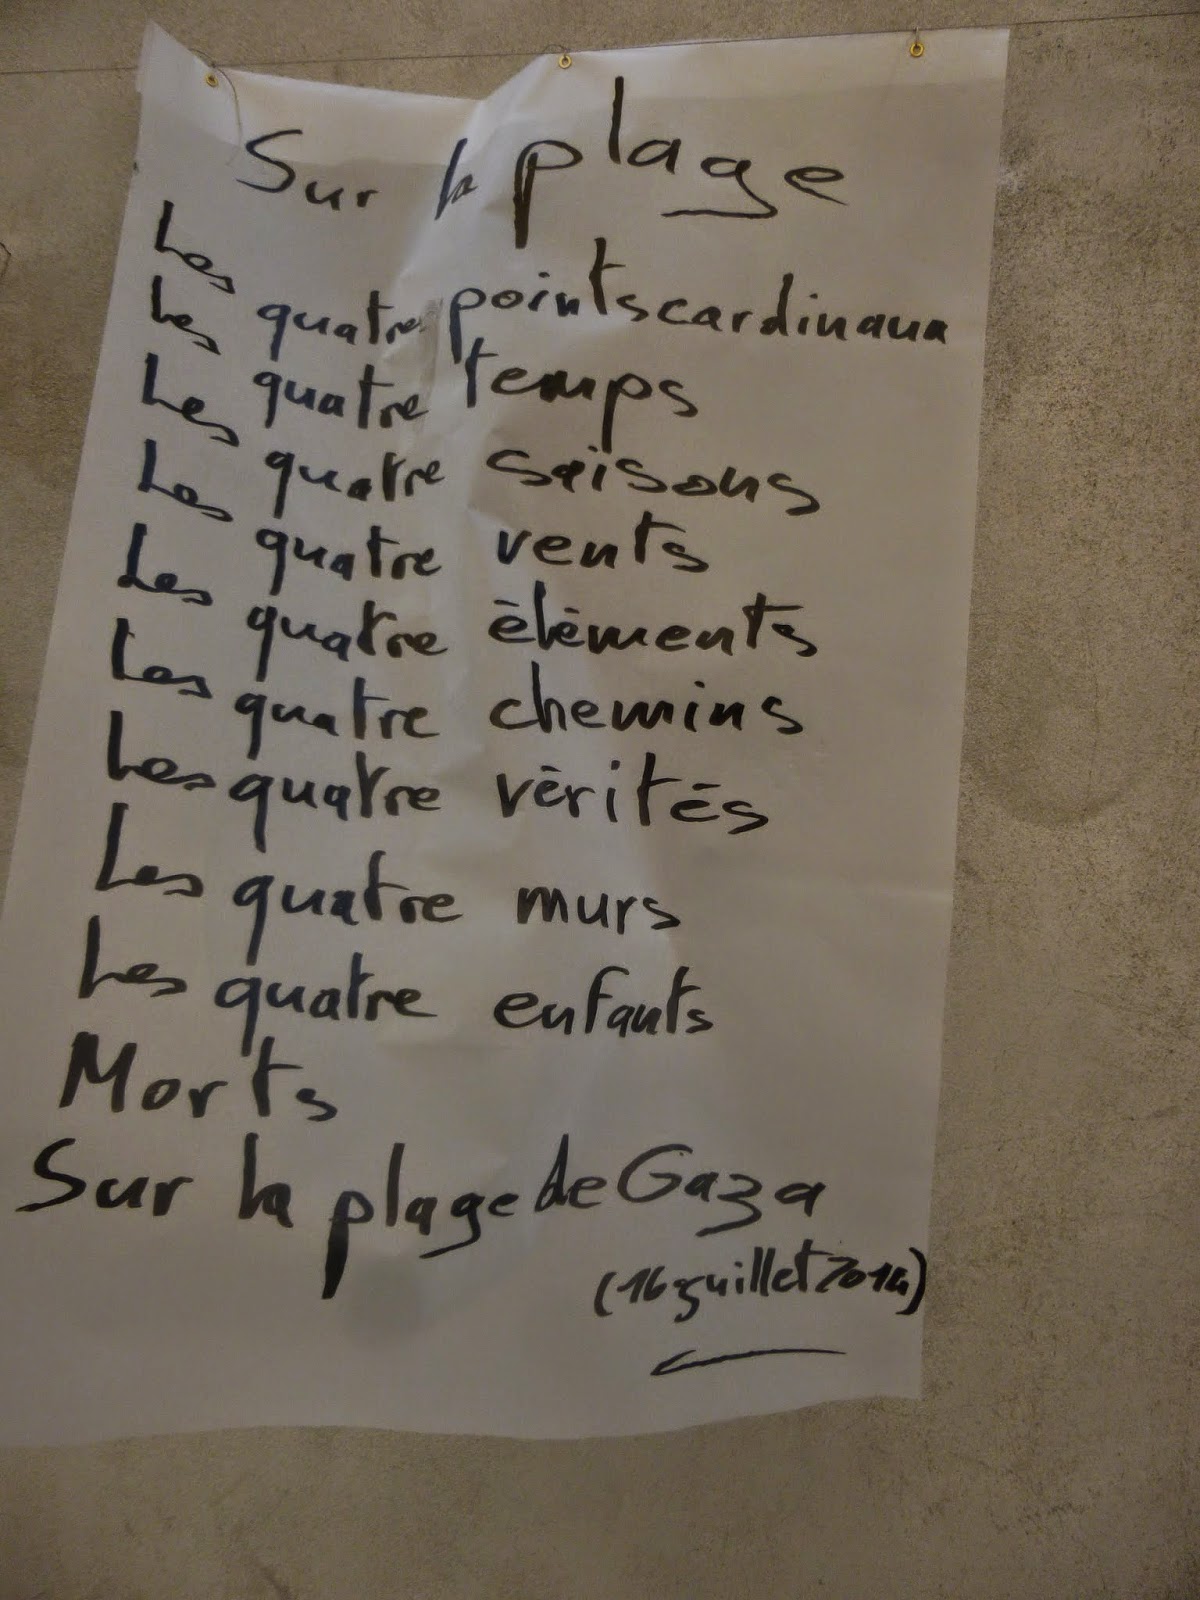 Sur la plage
Les quatre points cardinaux
Les quatre temps
Les quatre saisons
Les quatre vents
Les quatre éléments
Les quatre chemins
Les quatre vérités
Les quatre murs
Les quatre enfants
Morts
Sur la plage de Gaza
(16 juillet 2014)